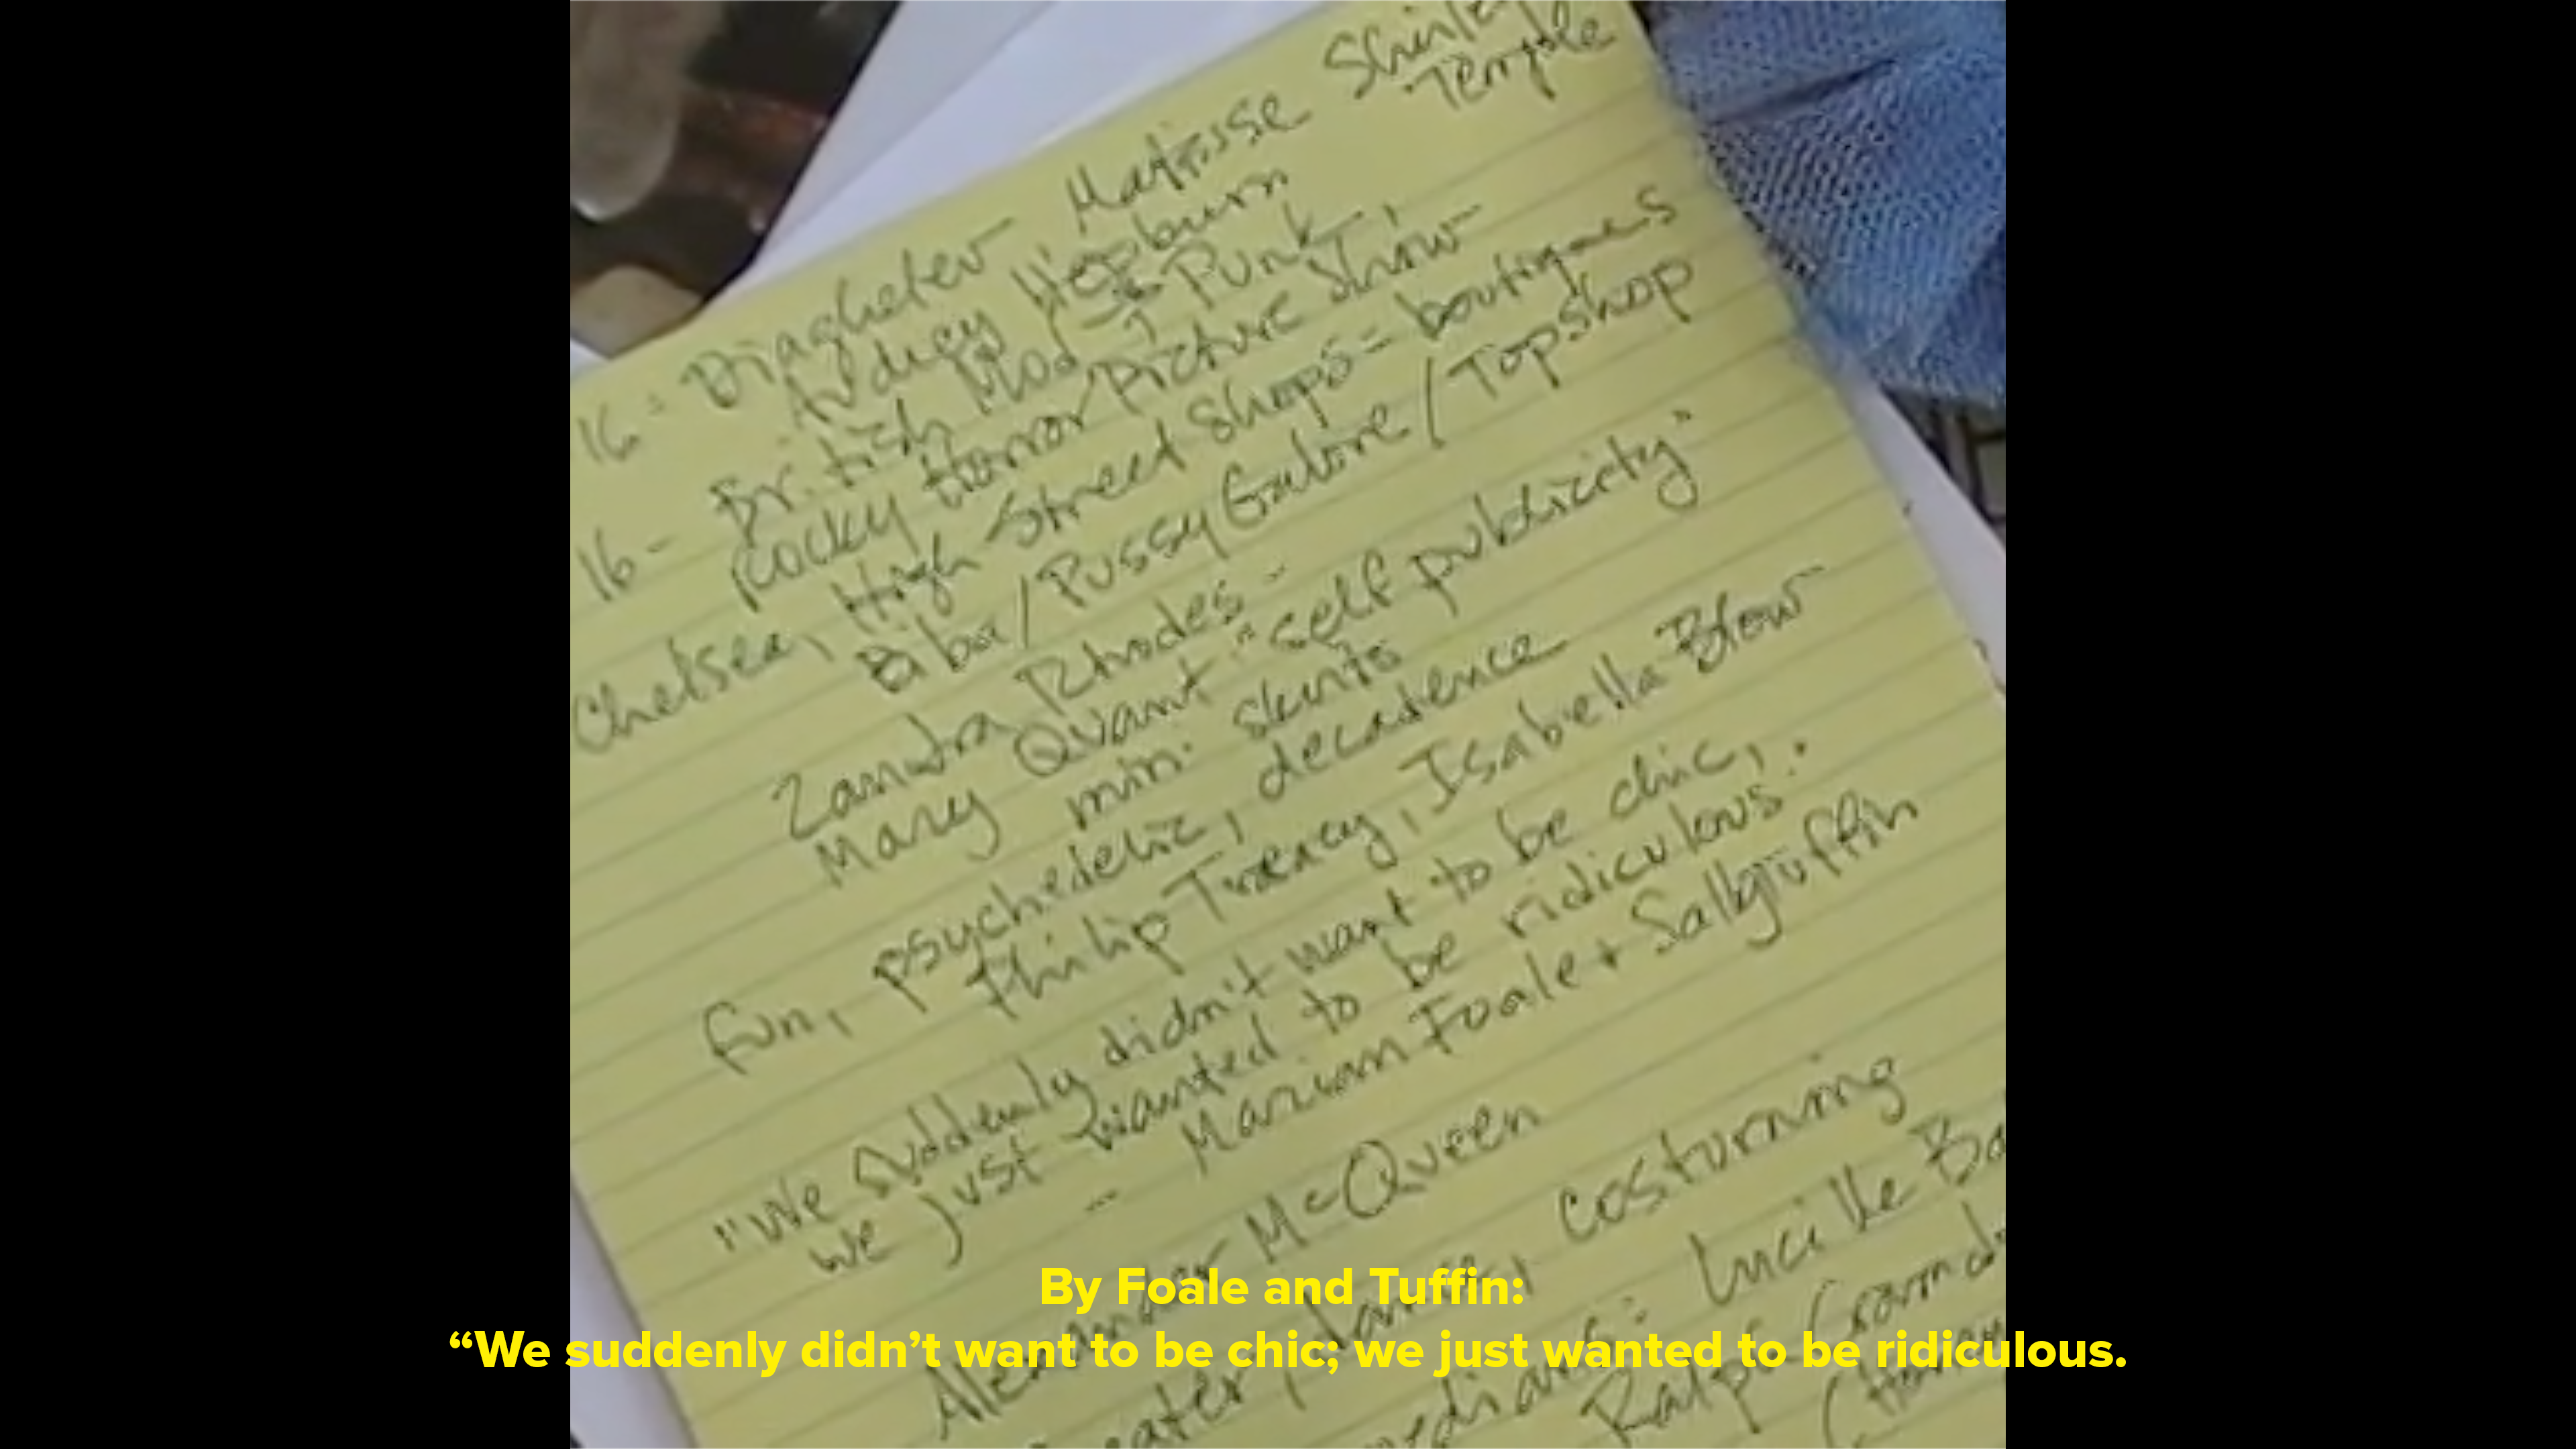 16 = Diaghelev Matisse Shirley
Temple
Audrey Hepburn
16- British Mod & Punk,
Rocky Horror Picture Show
Chelsea, High Street Shops = boutiques
Biba / Pussy Galore / Top Shop
Zandra Rhodes -
Mary Quant "self publicity"
mini skirts
fun, psychedelic, decadence
Philip Treacy, Isabella Blow
"We suddenly didn't want to be chic,
we just wanted to be ridiculous."
-- Marian Foale + Sally Tuffin
Alexander McQueen
costuming
Lucille Ba
Ralph
By Foale and Tuffin:
“We suddenly didn’t want to be chic; we just wanted to be ridiculous.